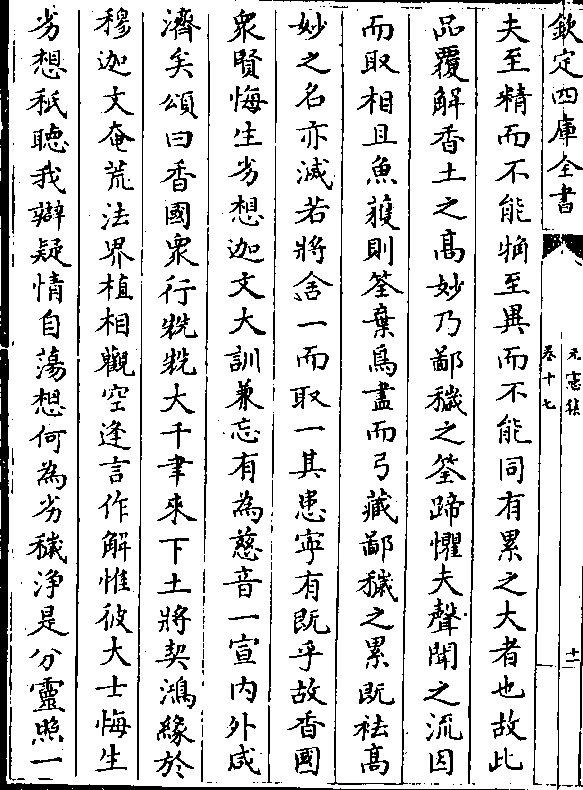 欽定四庫全書
元憲集
卷十七
十一
夫至精而不能狥至異而不能同有累之大者也故此
品覆解香土之高妙乃鄙穢之筌蹄懼夫聲聞之流因
而取相且魚獲則筌棄鳥盡而弓藏鄙穢之累既袪高
妙之名亦滅若將舍一而取一其患寜有既乎故香國
衆賢悔生劣想迦文大訓兼忘有為慈音一宣内外咸
濟矣頌曰香國衆行㲠㲠大千聿來下土將契鴻緣於
穆迦文奄荒法界植相觀空逢言作解惟彼大士悔生
劣想秪聽我辯疑情自蕩想何為劣穢浄是分靈照一